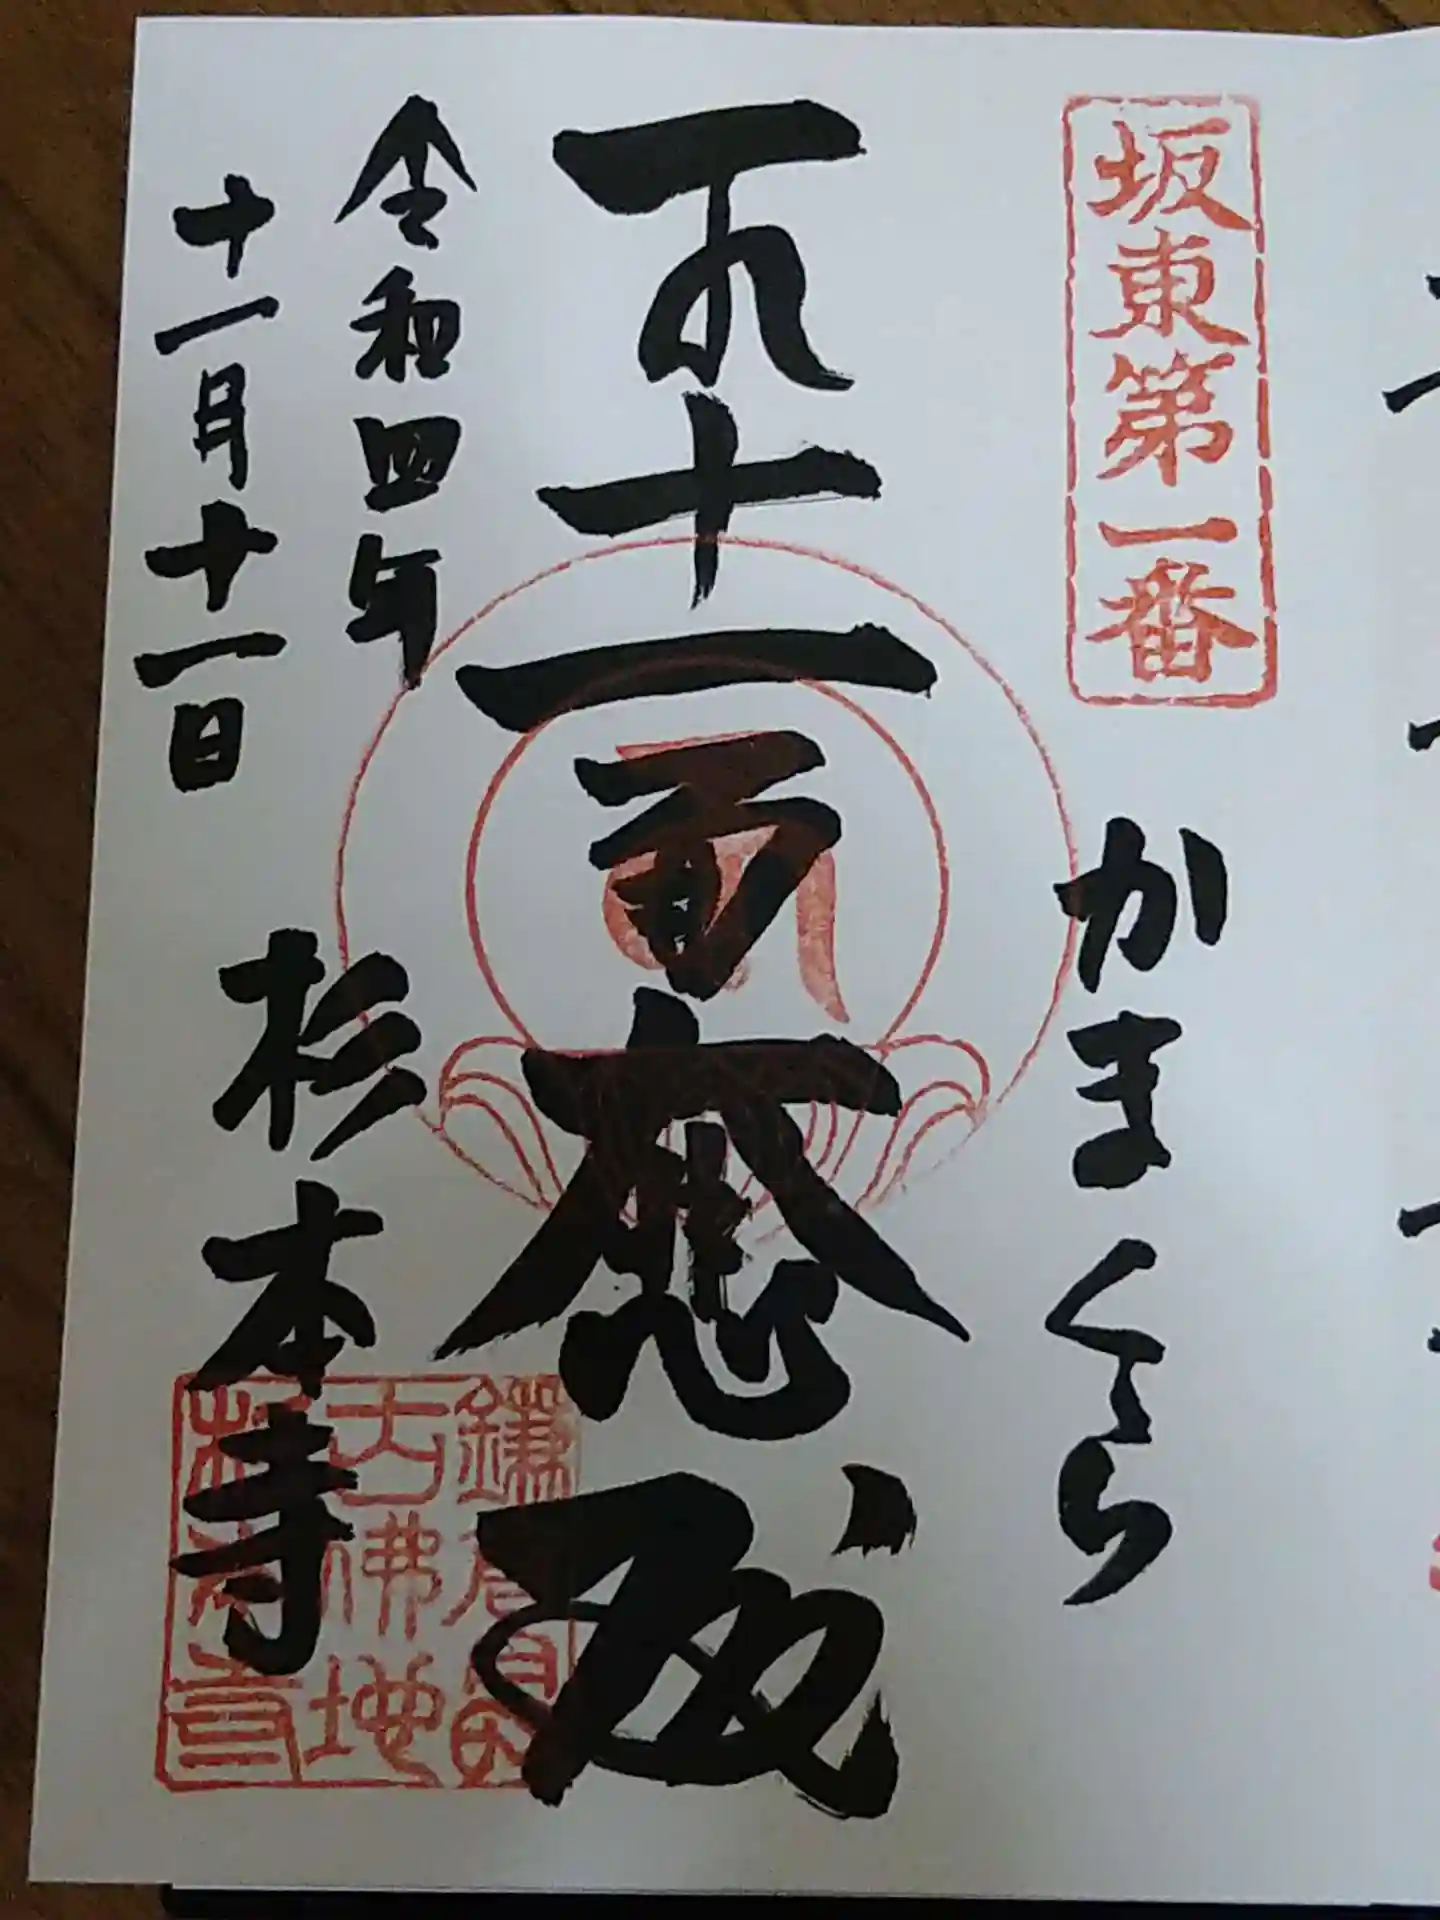 坂東第一番
かまくら
十一面大悲殿
令和四年
十一月十一日
杉本寺
鎌倉最
古佛地
杉本寺